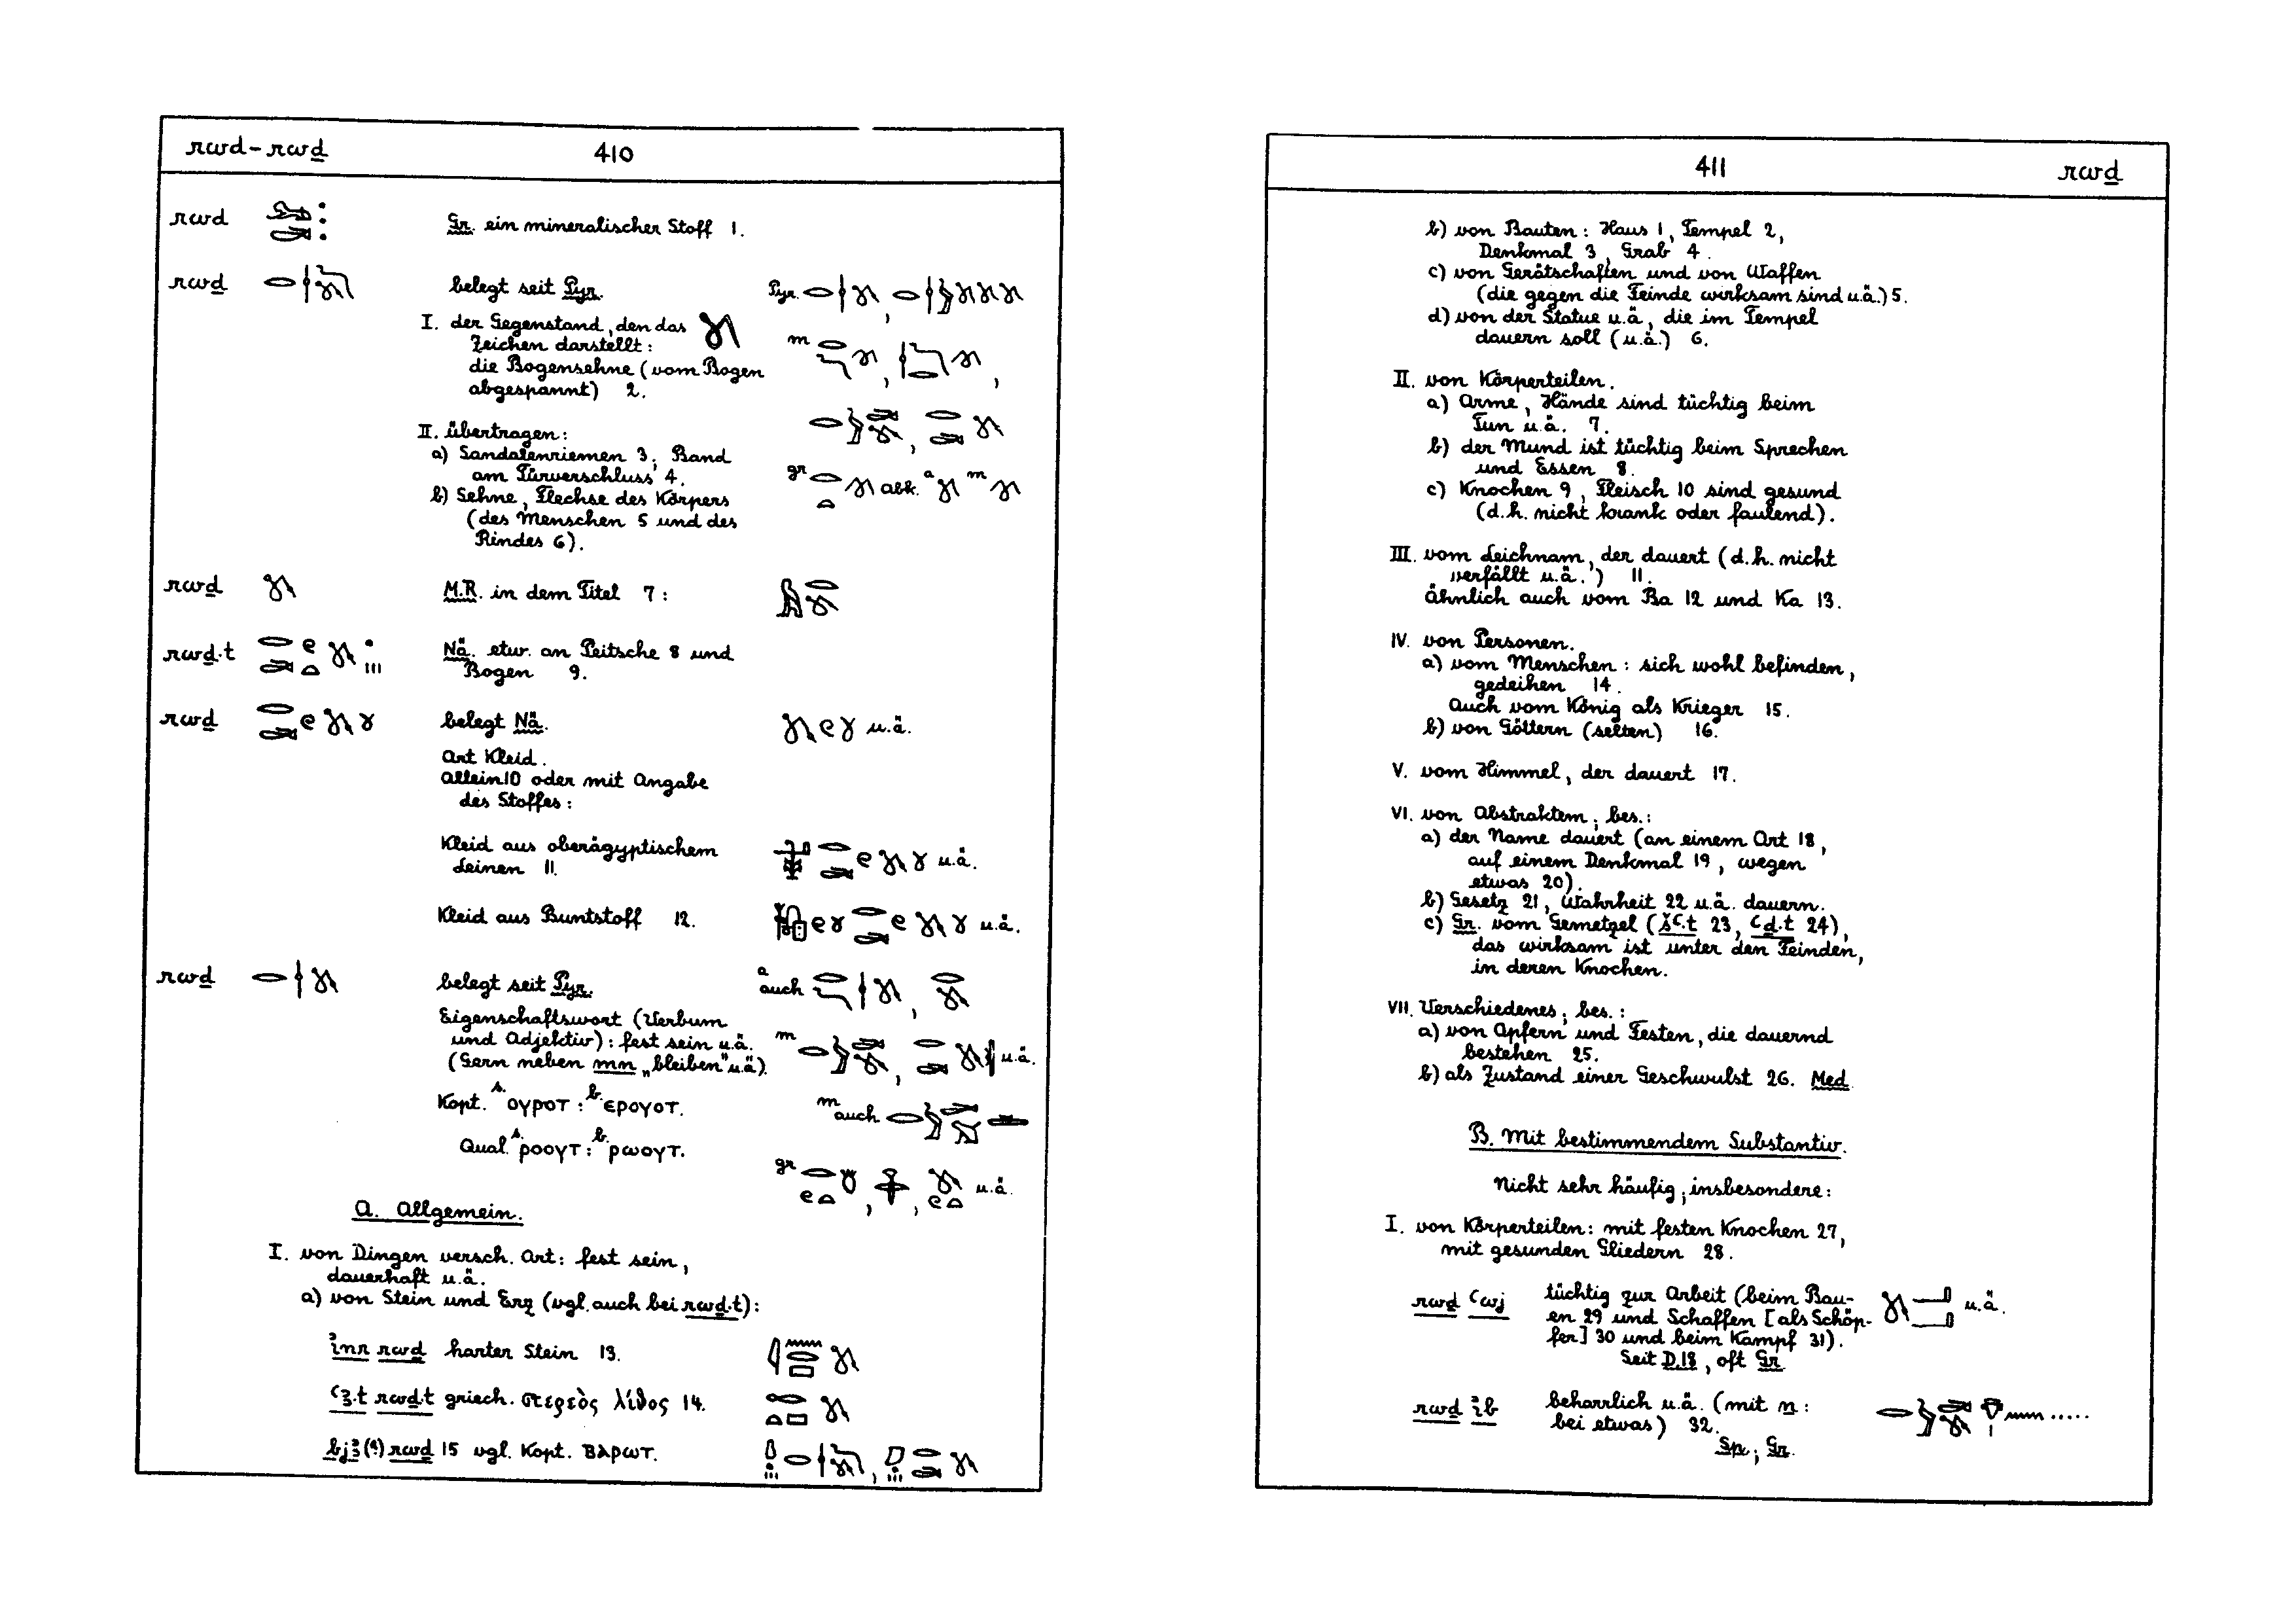 rwd - rwḏ 410
rwd Gr. ein mineralischer Stoff 1.
rwḏ belegt seit Pyr. Pyr.
I. der Gegenstand, den das
Zeichen darstellt: m
die Bogensehne (vom Bogen
abgespannt) 2.
II. übertragen:
a) Sandalenriemen 3; Band
am Türverschluss 4.
gr abk. a m
b) Sehne, Flechse des Körpers
(des Menschen 5 und des
Rindes 6).
rwḏ M.R. in dem Titel 7:
rwḏ.t Nä. etw. an Peitsche 8 und
Bogen 9.
rwḏ belegt Nä. u.ä.
Art Kleid.
Allein 10 oder mit Angabe
des Stoffes:
Kleid aus oberägyptischem
Leinen 11. u.ä.
Kleid aus Buntstoff 12. u.ä.
rwḏ belegt seit Pyr. a auch
Eigenschaftswort (Verbum
und Adjektiv): fest sein u.ä. m u.ä.
(Gern neben mn „bleiben" u.ä.).
Kopt. s. ⲟⲩⲣⲟⲧ : b. ⲉⲣⲟⲩⲟⲧ. m auch
Qual. s. ⲣⲟⲟⲩⲧ : b. ⲣⲱⲟⲩⲧ.
gr u.ä.
A. Allgemein.
I. von Dingen versch. Art: fest sein,
dauerhaft u.ä.
a) von Stein und Erz (vgl. auch bei rwḏ.t):
ỉnr rwḏ harter Stein 13.
ꜥꜣ.t rwḏ.t griech. στερεὸς λίθος 14.
bjꜣ(?) rwḏ 15 vgl. Kopt. ⲃⲁⲣⲱⲧ.
411 rwḏ
b) von Bauten: Haus 1, Tempel 2,
Denkmal 3, Grab 4.
c) von Gerätschaften und von Waffen
(die gegen die Feinde wirksam sind u.ä.) 5.
d) von der Statue u.ä., die im Tempel
dauern soll (u.ä.) 6.
II. von Körperteilen.
a) Arme, Hände sind tüchtig beim
Tun u.ä. 7.
b) der Mund ist tüchtig beim Sprechen
und Essen 8.
c) Knochen 9, Fleisch 10 sind gesund
(d.h. nicht krank oder faulend).
III. vom Leichnam, der dauert (d.h. nicht
verfällt u.ä.) 11.
Ähnlich auch vom Ba 12 und Ka 13.
IV. von Personen.
a) vom Menschen: sich wohl befinden,
gedeihen 14.
Auch vom König als Krieger 15.
b) von Göttern (selten) 16.
V. vom Himmel, der dauert 17.
VI. von Abstraktem; bes.:
a) der Name dauert (an einem Ort 18,
auf einem Denkmal 19, wegen
etwas 20).
b) Gesetz 21, Wahrheit 22 u.ä. dauern.
c) Gr. vom Gemetzel (šꜥ.t 23, ꜥḏ.t 24),
das wirksam ist unter den Feinden,
in deren Knochen.
VII. Verschiedenes; bes.:
a) von Opfern und Festen, die dauernd
bestehen 25.
b) als Zustand einer Geschwulst 26. Med.
B. Mit bestimmendem Substantiv.
Nicht sehr häufig; insbesondere:
I. von Körperteilen: mit festen Knochen 27,
mit gesunden Gliedern 28.
rwḏ ꜥwj tüchtig zur Arbeit (beim Bau- u.ä.
en 29 und Schaffen [als Schöp-
fer] 30 und beim Kampf 31).
Seit D.18, oft Gr.
rwḏ ỉb beharrlich u.ä. (mit n: .....
bei etwas) 32.
Sp.; Gr.